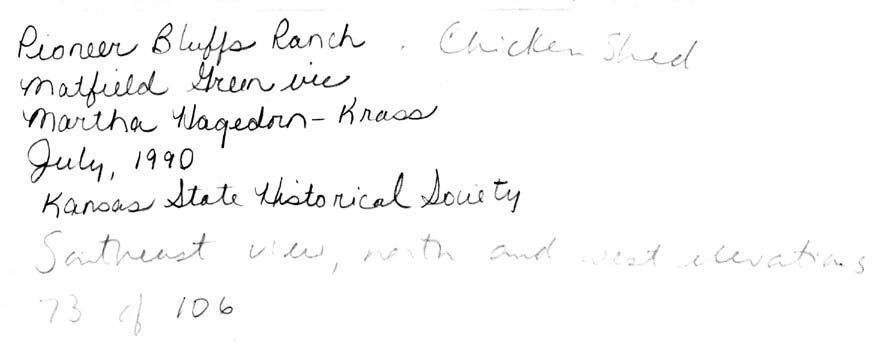 Pioneer Bluffs Ranch . Chicken Shed
Matfield Green vic
Martha Hagedorn-Krass
July, 1990
Kansas State Historical Society
Southeast view, north and west elevations
73 of 106